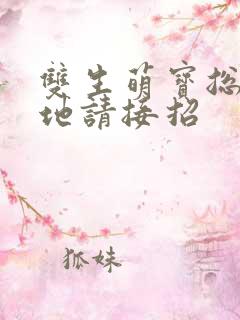 雙生萌寶總
地請接招
狐妹